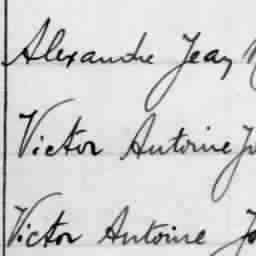 Alexandre Jean
Victor Antoine
Victor Antoine